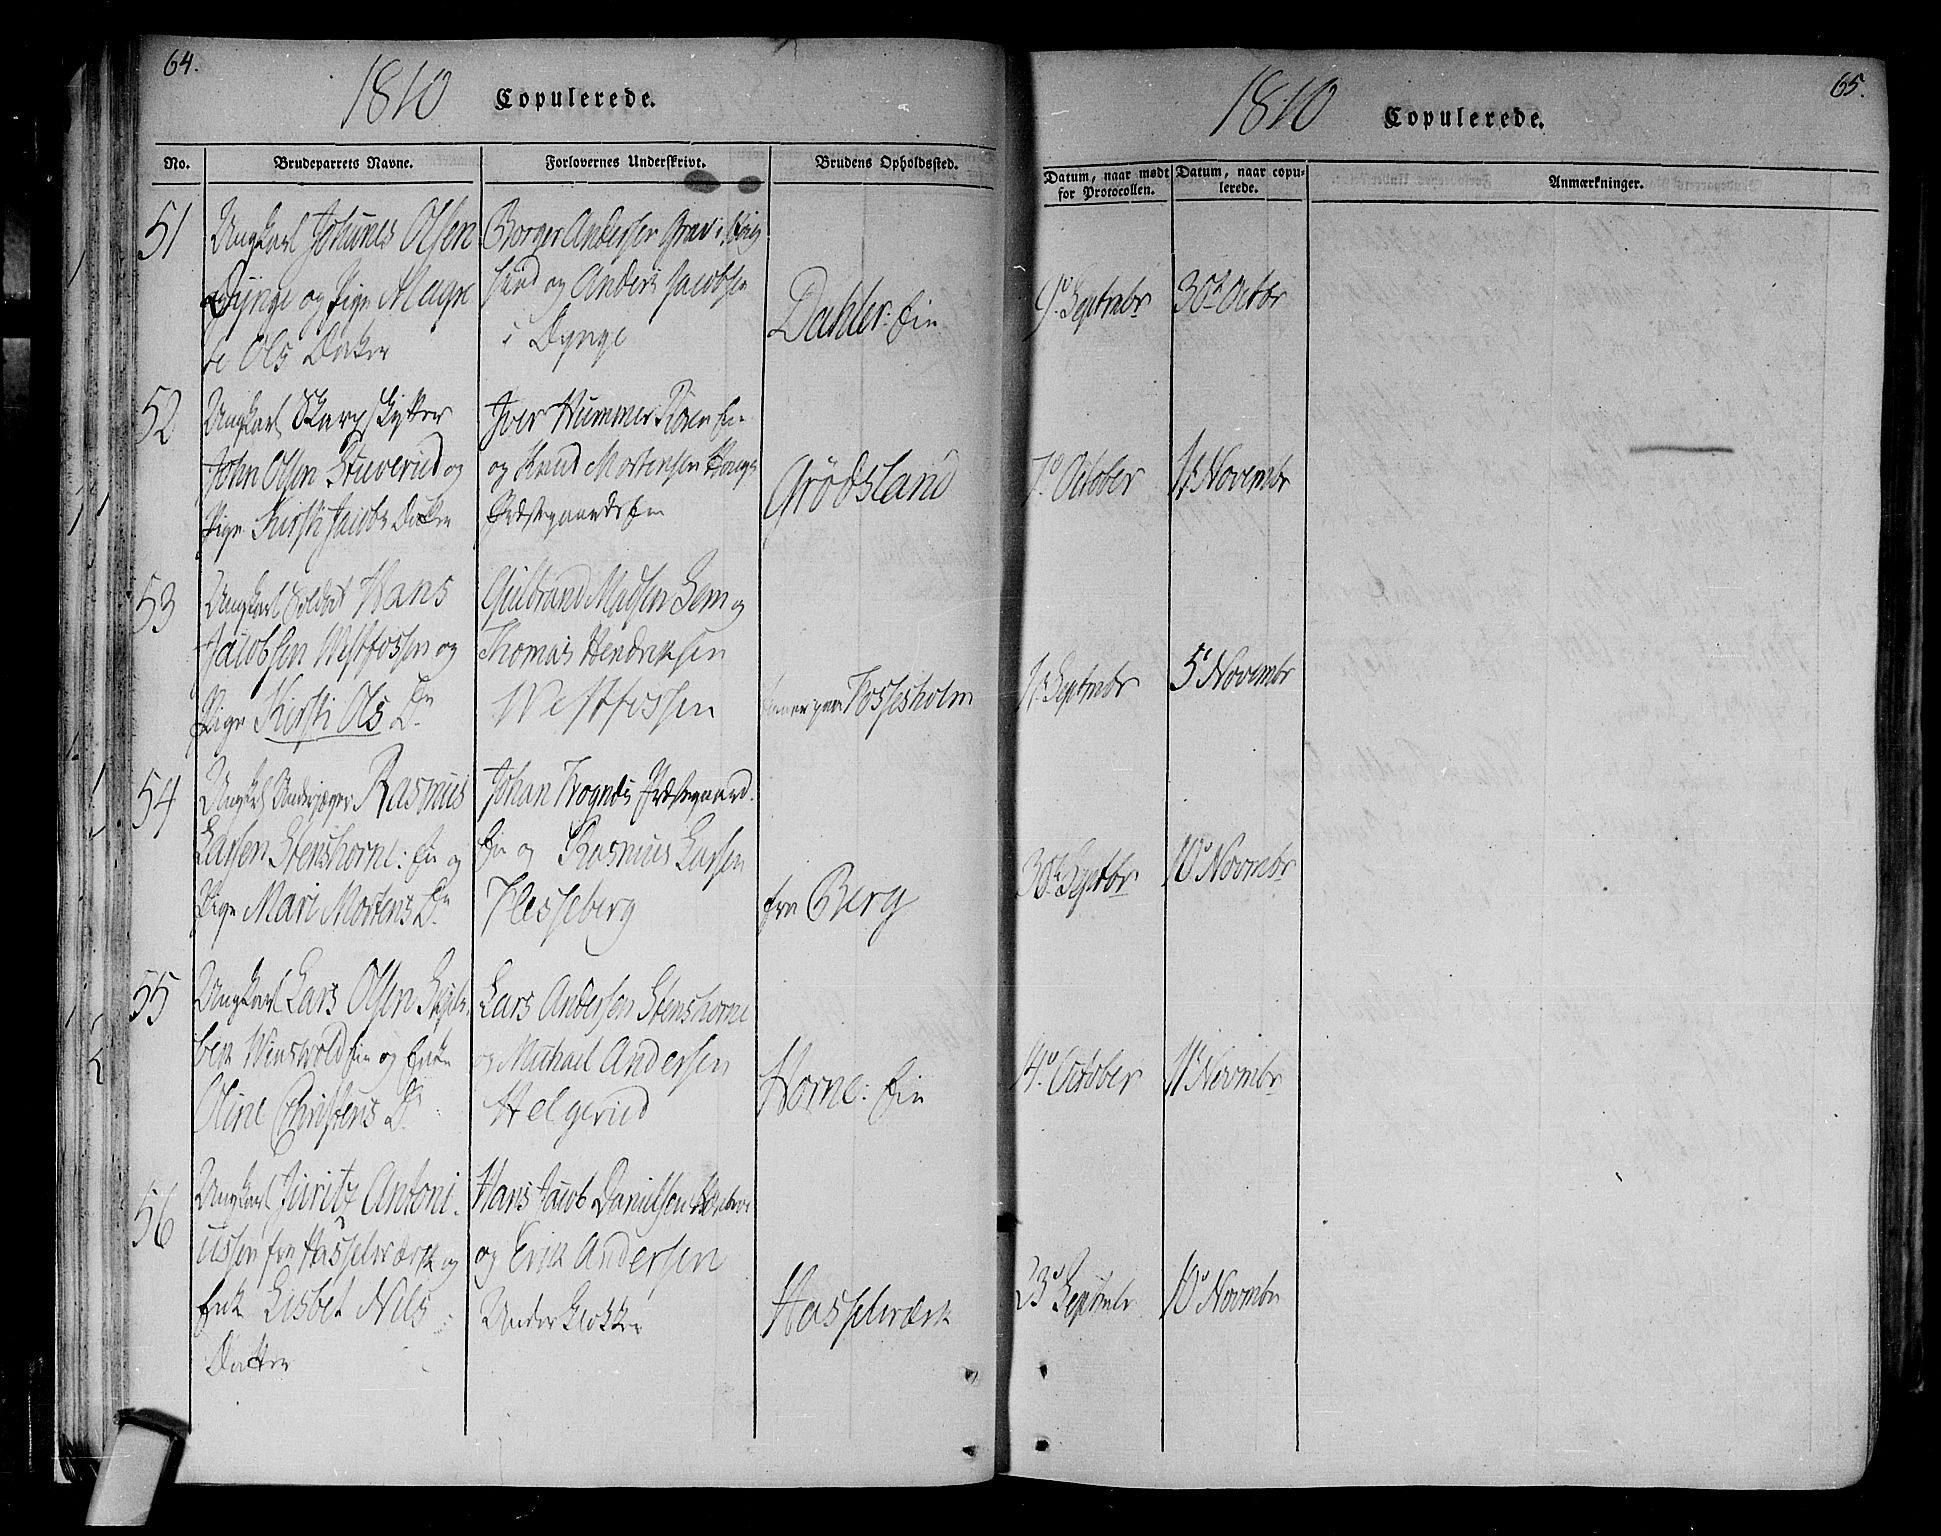 64.
1810 Copulerede.
No. Brudeparrets Navne. Forlovernes Underskrivt. Brudens Opholdssted.
51
Ungkarl Johannes Olsen
Dynge og Pige Magre
te Ols Datter
Borger Andersen Grav i Haug
sund og Anders Jacobsen
i Dynge
Dahler: Eie
52
Ungkarl Skarpskytter
John Olsen Stuverud og
Pige Kirsti Jacobs Datter
Iver Hummer
og Knud Mortensen Houg
Præstegaards Eie
Grødsland
53
Ungkarl Soldat Hans
Jacobsen Westfossen og
Pige Kirsti Ols Dr
Gulbrand Madsen Sem og
Thomas Hendriksen
Westfossen
tiener paa Fossesholm
54
Ungkarl Underjæger Rasmus
Larsen Stenshorne: Eie og
Pige Mari Mortens Dr
Johan Rognås Præstegaard.
Eie og Rasmus Larsen
Flesseberg
fra Berg
55
Ungkarl Lars Olsen
Winsvold Eie og Enke
Oline Christens Dr.
Lars Andersen Stenshorne
og Michael Andersen
Helgerud
Horne: Eie
56
Ungkarl Juritz Antoni-
ussen fra Hasselværk og
Enke Lisbet Nils
Datter
Hans Jacob Danielsen
og Erik Andersen
Under Klokker
Hasselværk
65.
1810 Copulerede.
Datum, naar mødt for Protocollen. Datum, naar copulerede. Anmærkninger.
9de Septembr 30te Octbr
7de October 1te Novembr
1te Septembr 5te Novembr
30te Septbr 10de Novembr
14de October 11te Novembr
23de Septembr 10de Novembr